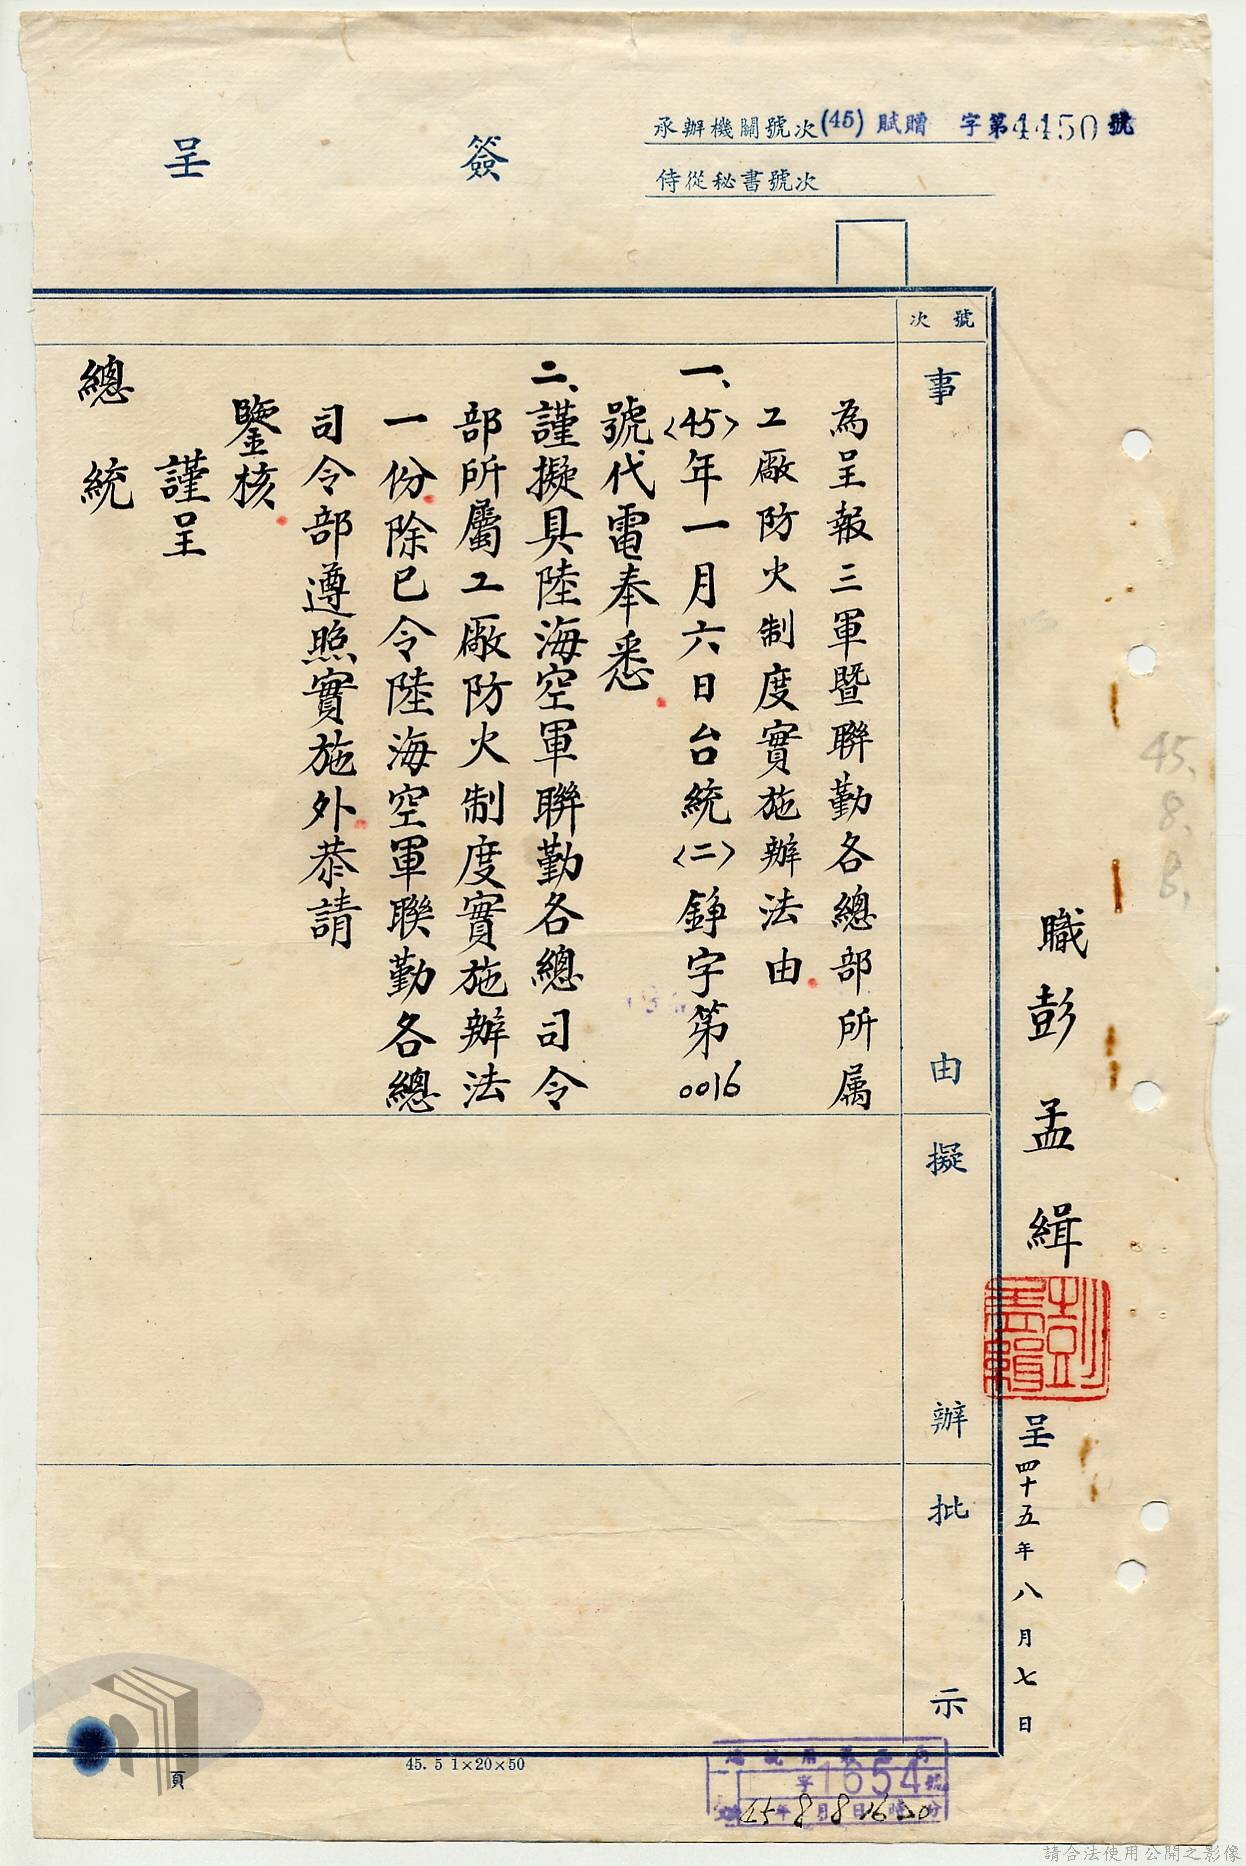 簽呈
承辦機關號次(45)賦贈 字第4450號
侍從秘書號次
職彭孟緝
呈四十五年八月七日
45.8.8.
號次
事由
擬辦
批示
為呈報三軍暨聯勤各總部所屬
工廠防火制度實施辦法由
一、〈45〉年一月六日台統〈二〉錚字第0016
號代電奉悉
二、謹擬具陸海空軍聯勤各總司令
部所屬工廠防火制度實施辦法
一份除已令陸海空軍聯勤各總
司令部遵照實施外恭請
鑒核
謹呈
總統
字1654號
45年8月8日16時20分
45.5 1×20×50
頁
請合法使用公開之影像